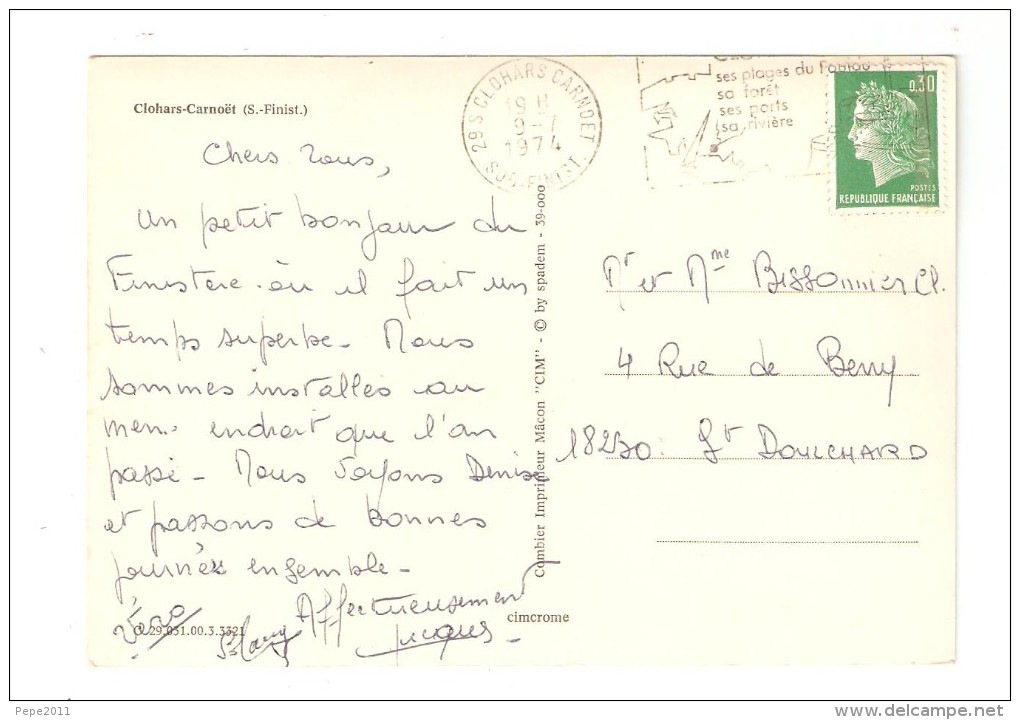 Clohars-Carnoët (S.-Finist.)
Chers Tous,
Un petit bonjour du
Finistère où il fait un
temps superbe - Nous
sommes installés au
même endroit que l'an
passé - Nous voyons Denise
et passons de bonnes
journées ensemble -
Affectueusement
Jacques
CL 29.031.00.3.3321
29 S CLOHARS CARNOET
19 H
9-7
1974
SUD-FINIST.
ses plages du Pouldu
sa forêt
ses ports
sa rivière
0,30
POSTES
REPUBLIQUE FRANÇAISE
Combier Imprimeur Mâcon "CIM" - © by spadem - 39-000
cimcrome
Mr et Mme Bissonnier Cl.
4 Rue de Berry
18230 St DOULCHARD
Pepe2011